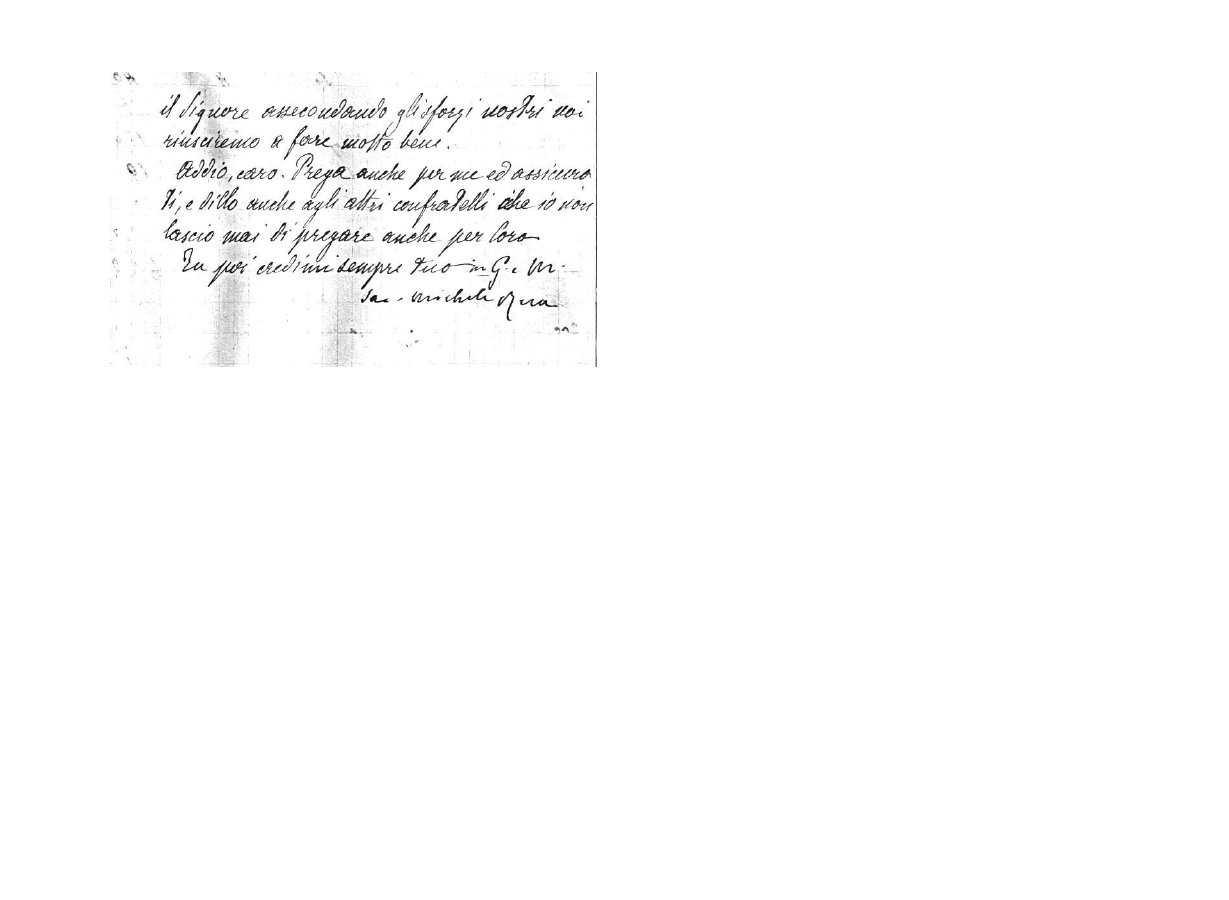 il Signore assecondando gli sforzi nostri noi
riusciremo a fare molto bene.
Addio, caro. Prega anche per me ed assicura
ti, e dillo anche agli altri confratelli che io non
lascio mai di pregare anche per loro
Tu poi credimi sempre tuo in G. e M.
Sac. Michele Rua